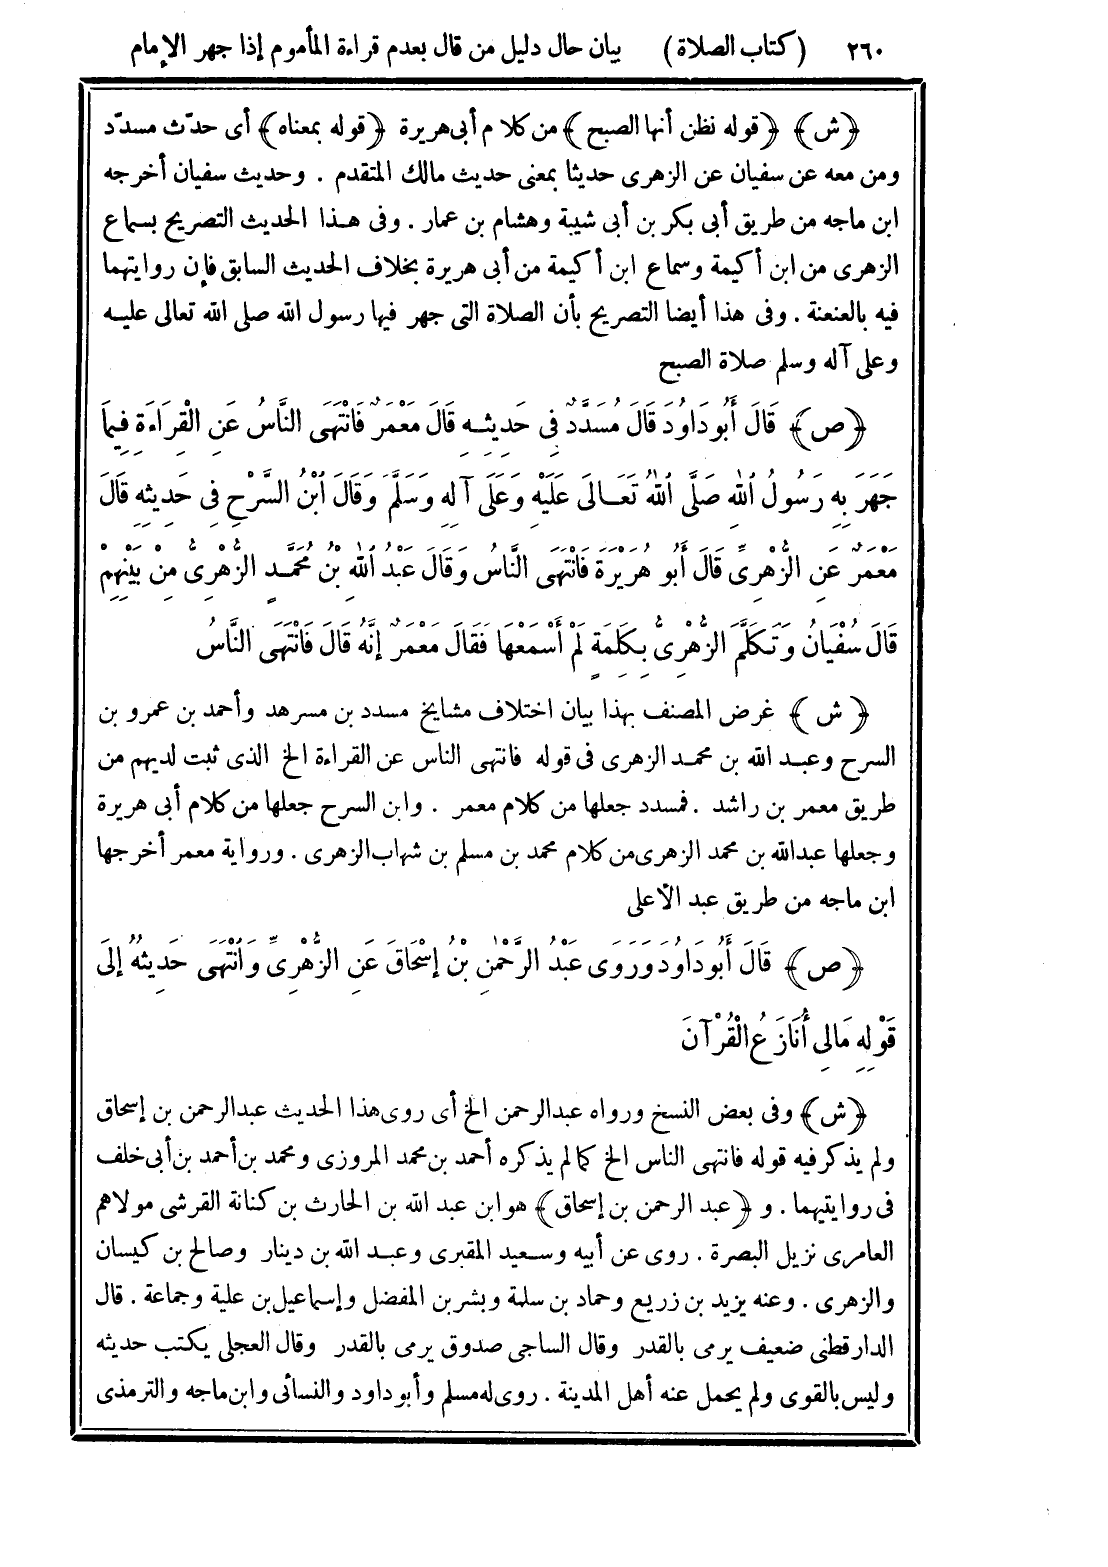 ٢٦٠ (كتاب الصلاة) بيان حال دليل من قال بعدم قراءة المأموم إذا جهر الإمام
﴿ش﴾ ﴿قوله نظن أنها الصبح﴾ من كلام أبى هريرة ﴿قوله بمعناه﴾ أى حدّث مسدّد
ومن معه عن سفيان عن الزهرى حديثا بمعنى حديث مالك المتقدم . وحديث سفيان أخرجه
ابن ماجه من طريق أبى بكر بن أبى شيبة وهشام بن عمار . وفى هذا الحديث التصريح بسماع
الزهرى من ابن أكيمة وسماع ابن أكيمة من أبى هريرة بخلاف الحديث السابق فإن روايتهما
فيه بالعنعنة . وفى هذا أيضا التصريح بأن الصلاة التى جهر فيها رسول الله صلى الله تعالى عليه
وعلى آله وسلم صلاة الصبح
﴿ص﴾ قَالَ أَبُو دَاوُدَ قَالَ مُسَدَّدٌ فِى حَدِيثِهِ قَالَ مَعْمَرٌ فَانْتَهَى النَّاسُ عَنِ الْقِرَاءَةِ فِيمَا
جَهَرَ بِهِ رَسُولُ اللهِ صَلَّى اللهُ تَعَالَى عَلَيْهِ وَعَلَى آلِهِ وَسَلَّمَ وَقَالَ ابْنُ السَّرْحِ فِى حَدِيثِهِ قَالَ
مَعْمَرٌ عَنِ الزُّهْرِىِّ قَالَ أَبُو هُرَيْرَةَ فَانْتَهَى النَّاسُ وَقَالَ عَبْدُ اللهِ بْنُ مُحَمَّدٍ الزُّهْرِىُّ مِنْ بَيْنِهِمْ
قَالَ سُفْيَانُ وَتَكَلَّمَ الزُّهْرِىُّ بِكَلِمَةٍ لَمْ أَسْمَعْهَا فَقَالَ مَعْمَرٌ إِنَّهُ قَالَ فَانْتَهَى النَّاسُ
﴿ش﴾ غرض المصنف بهذا بيان اختلاف مشايخ مسدد بن مسرهد وأحمد بن عمرو بن
السرح وعبد الله بن محمد الزهرى فى قوله فانتهى الناس عن القراءة الخ الذى ثبت لديهم من
طريق معمر بن راشد . فمسدد جعلها من كلام معمر . وابن السرح جعلها من كلام أبى هريرة
وجعلها عبدالله بن محمد الزهرى من كلام محمد بن مسلم بن شهاب الزهرى . ورواية معمر أخرجها
ابن ماجه من طريق عبد الأعلى
﴿ص﴾ قَالَ أَبُو دَاوُدَ وَرَوَى عَبْدُ الرَّحْمٰنِ بْنُ إِسْحَاقَ عَنِ الزُّهْرِىِّ وَانْتَهَى حَدِيثُهُ إِلَى
قَوْلِهِ مَالِى أُنَازَعُ الْقُرْآنَ
﴿ش﴾ وفى بعض النسخ ورواه عبدالرحمن الخ أى روى هذا الحديث عبدالرحمن بن إسحاق
ولم يذكر فيه قوله فانتهى الناس الخ كما لم يذكره أحمد بن محمد المروزى ومحمد بن أحمد بن أبى خلف
فى روايتيهما . و ﴿عبد الرحمن بن إسحاق﴾ هو ابن عبد الله بن الحارث بن كنانة القرشى مولاهم
العامرى نزيل البصرة . روى عن أبيه وسعيد المقبرى وعبد الله بن دينار وصالح بن كيسان
والزهرى . وعنه يزيد بن زريع وحماد بن سلمة وبشر بن المفضل وإسماعيل بن علية وجماعة . قال
الدارقطنى ضعيف يرمى بالقدر وقال الساجى صدوق يرمى بالقدر وقال العجلى يكتب حديثه
وليس بالقوى ولم يحمل عنه أهل المدينة . روى له مسلم وأبو داود والنسائى وابن ماجه والترمذى